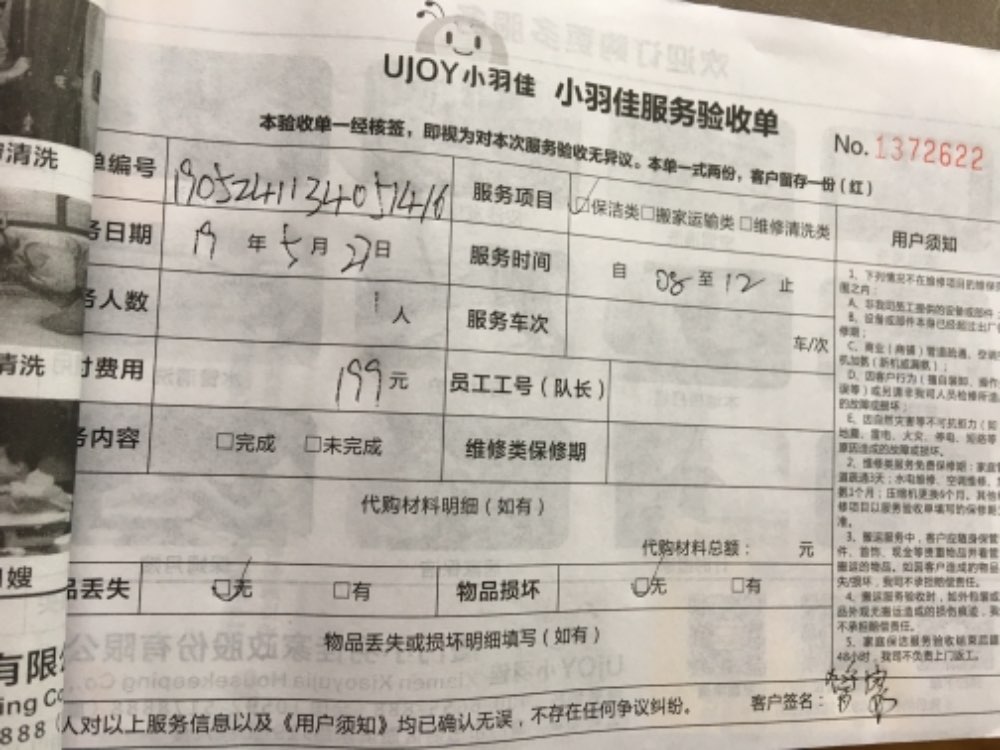 UJOY小羽佳 小羽佳服务验收单
本验收单一经核签，即视为对本次服务验收无异议。本单一式两份，客户留存一份（红）
No. 1372622
清洗
单编号 1905241134051416 服务项目 ☑保洁类□搬家运输类□维修清洗类
务日期 19 年 5 月 27 日 服务时间 自 08 至 12 止
务人数 1 人 服务车次 车/次
清洗
付费用 199 元 员工工号（队长）
务内容 □完成 □未完成 维修类保修期
代购材料明细（如有）
代购材料总额： 元
月嫂
品丢失 ☑无 □有 物品损坏 ☑无 □有
物品丢失或损坏明细填写（如有）
人对以上服务信息以及《用户须知》均已确认无误，不存在任何争议纠纷。 客户签名：
用户须知
1、下列情况不在维修项目的维保范
围之内：
A、非我司员工提供的设备或部件
B、设备或部件本身已经超过出厂
修期；
C、商业（商铺）管道疏通、空调
机加氨（新机或漏氨）；
D、因客户行为（擅自装卸、操作
误等）或另请非我司人员检修所造
的故障或损坏；
E、因自然灾害等不可抗拒力（如
地震、雷电、火灾、停电、短路等
原因造成的故障或损坏。
2、维修类服务免费保修期：家庭管
道疏通3天；水电维修、空调维修、
氨1个月；压缩机更换6个月。其他
修项目以服务验收单填写的保修期
准。
3、搬运服务中，客户应随身保管
件、首饰、现金等贵重物品并看管
搬运的物品。如因客户造成的物品
失/损坏，我司不承担赔偿责任。
4、搬运服务验收时，如外包装或
品外观无搬运造成的损伤痕迹，我
不承担赔偿责任。
5、家庭保洁服务验收结束后超
48小时，我司不负责上门返工。
有限
ing Co
888